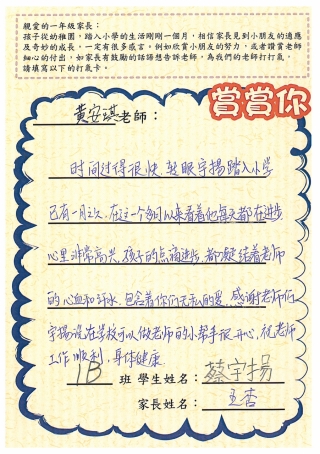 親愛的一年級家長：
孩子從幼稚園，踏入小學的生活剛剛一個月，相信家長見到小朋友的適應
及奇妙的成長，一定有很多感言。例如欣賞小朋友的努力，或者讚賞老師
細心的付出，如家長有鼓勵的話語想告訴老師，為我們的老師打打氣，
請填寫以下的打氣卡。
賞賞你
黃安琪老師：
时间过得很快，转眼宇揚踏入小学
已有一月之久，在这一个多月以来看着他每天都在进步
心里非常高兴，孩子的点滴进步，都凝结着老师
的心血和汗水，包含着你们无私的爱，感谢老师们
宇揚说在学校可以做老师的小帮手很开心，祝老师
工作顺利，身体健康
1B 班 學生姓名：蔡宇揚
家長姓名：王杏